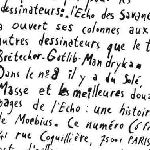 dessinateurs. l'Echo des Savanes
a ouvert ses colonnes aux
autres dessinateurs que le t
Bretecher-Gotlib-Mandryka
Dans le n°8 il y a du Solé,
Masse et les meilleures dou
pages de l'Echo : une histoire
de Moebius. Ce numéro (6 F
rue Coquillière, 75001 PARIS